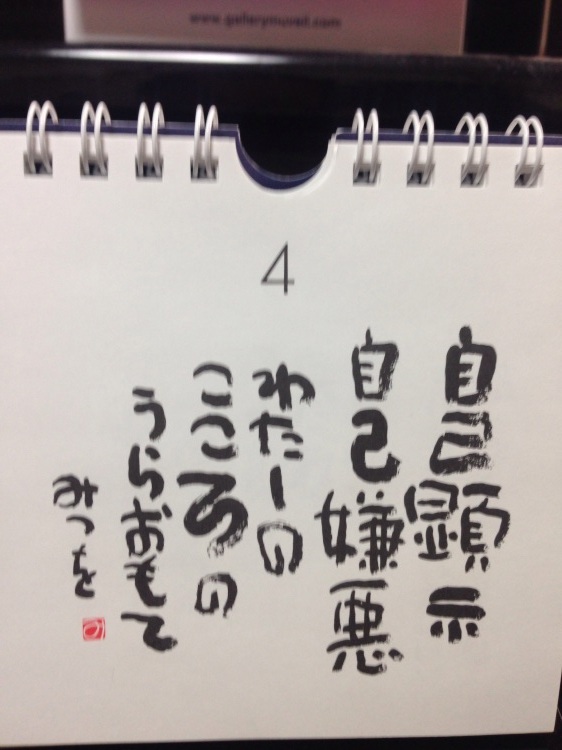 www.gallerymuveil.com
4
自己顕示
自己嫌悪
わたしの
こころの
うらおもて
みつを